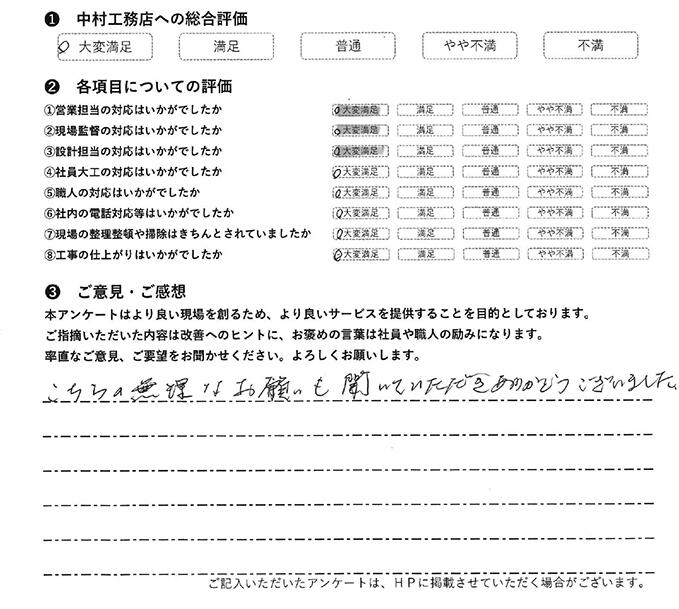 ❶ 中村工務店への総合評価
大変満足 満足 普通 やや不満 不満
❷ 各項目についての評価
①営業担当の対応はいかがでしたか 大変満足 満足 普通 やや不満 不満
②現場監督の対応はいかがでしたか 大変満足 満足 普通 やや不満 不満
③設計担当の対応はいかがでしたか 大変満足 満足 普通 やや不満 不満
④社員大工の対応はいかがでしたか 大変満足 満足 普通 やや不満 不満
⑤職人の対応はいかがでしたか 大変満足 満足 普通 やや不満 不満
⑥社内の電話対応等はいかがでしたか 大変満足 満足 普通 やや不満 不満
⑦現場の整理整頓や掃除はきちんとされていましたか 大変満足 満足 普通 やや不満 不満
⑧工事の仕上がりはいかがでしたか 大変満足 満足 普通 やや不満 不満
❸ ご意見・ご感想
本アンケートはより良い現場を創るため、より良いサービスを提供することを目的としております。
ご指摘いただいた内容は改善へのヒントに、お褒めの言葉は社員や職人の励みになります。
率直なご意見、ご要望をお聞かせください。よろしくお願いします。
こちらの無理なお願いも聞いていただきありがとうございました。
ご記入いただいたアンケートは、HPに掲載させていただく場合がございます。